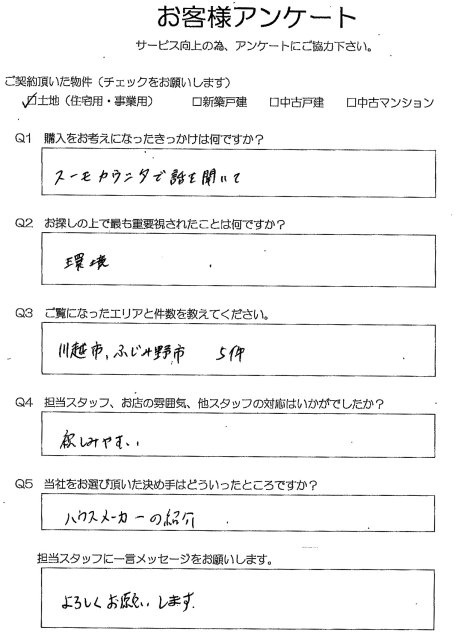 お客様アンケート
サービス向上の為、アンケートにご協力下さい。
ご契約頂いた物件（チェックをお願いします）
☑土地（住宅用・事業用） □新築戸建 □中古戸建 □中古マンション
Q1 購入をお考えになったきっかけは何ですか？
スーモカウンタで話を聞いて
Q2 お探しの上で最も重要視されたことは何ですか？
環境
Q3 ご覧になったエリアと件数を教えてください。
川越市、ふじみ野市 5件
Q4 担当スタッフ、お店の雰囲気、他スタッフの対応はいかがでしたか？
親しみやすい
Q5 当社をお選び頂いた決め手はどういったところですか？
ハウスメーカーの紹介
担当スタッフに一言メッセージをお願いします。
よろしくお願いします。